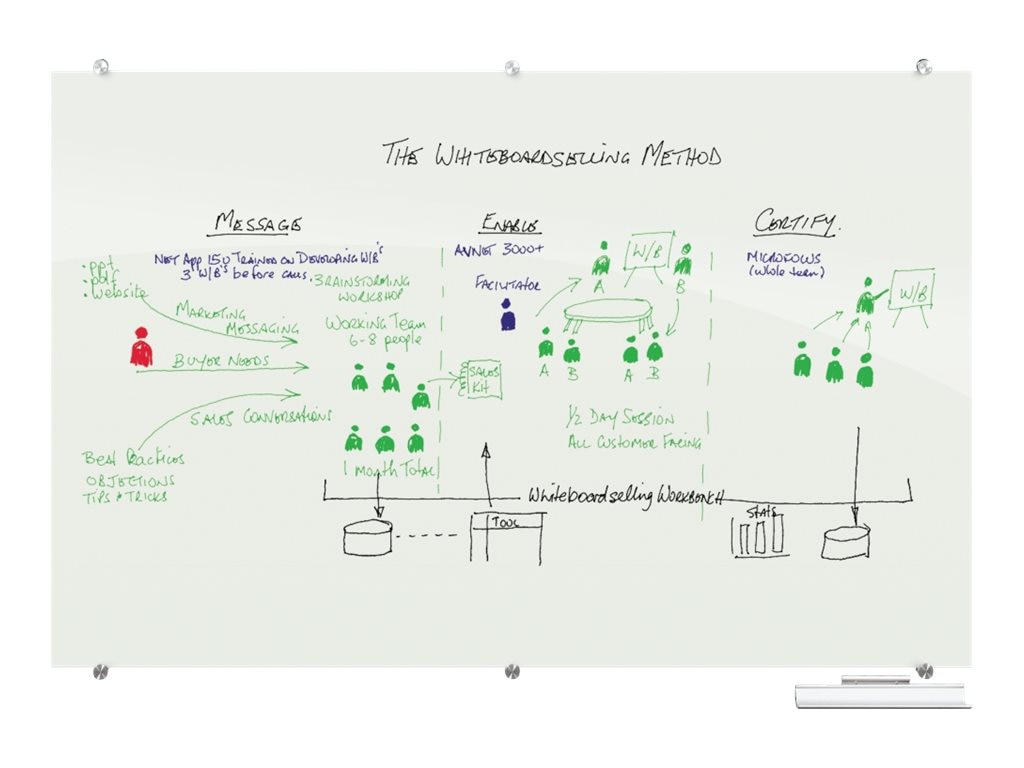 THE WHITEBOARDSELLING METHOD
MESSAGE
NET APP 150 TRAINED ON DEVELOPING W/B's
3 W/B's before calls.
.ppt
.pdf
.website
MARKETING
MESSAGING
BUYER NEEDS
SALES CONVERSATIONS
Best Practices
OBJECTIONS
TIPS + TRICKS
BRAINSTORMING
WORKSHOP
WORKING TEAM
6-8 people
1 month TOTAL
ENABLE
AVNET 3000+
FACILITATOR
SALES
KIT
W/B
A
B
A
B
A
B
1/2 DAY SESSION
ALL CUSTOMER FACING
CERTIFY.
MICROFOCUS
(whole team)
W/B
A
Whiteboardselling WORKBENCH
TOOL
STATS